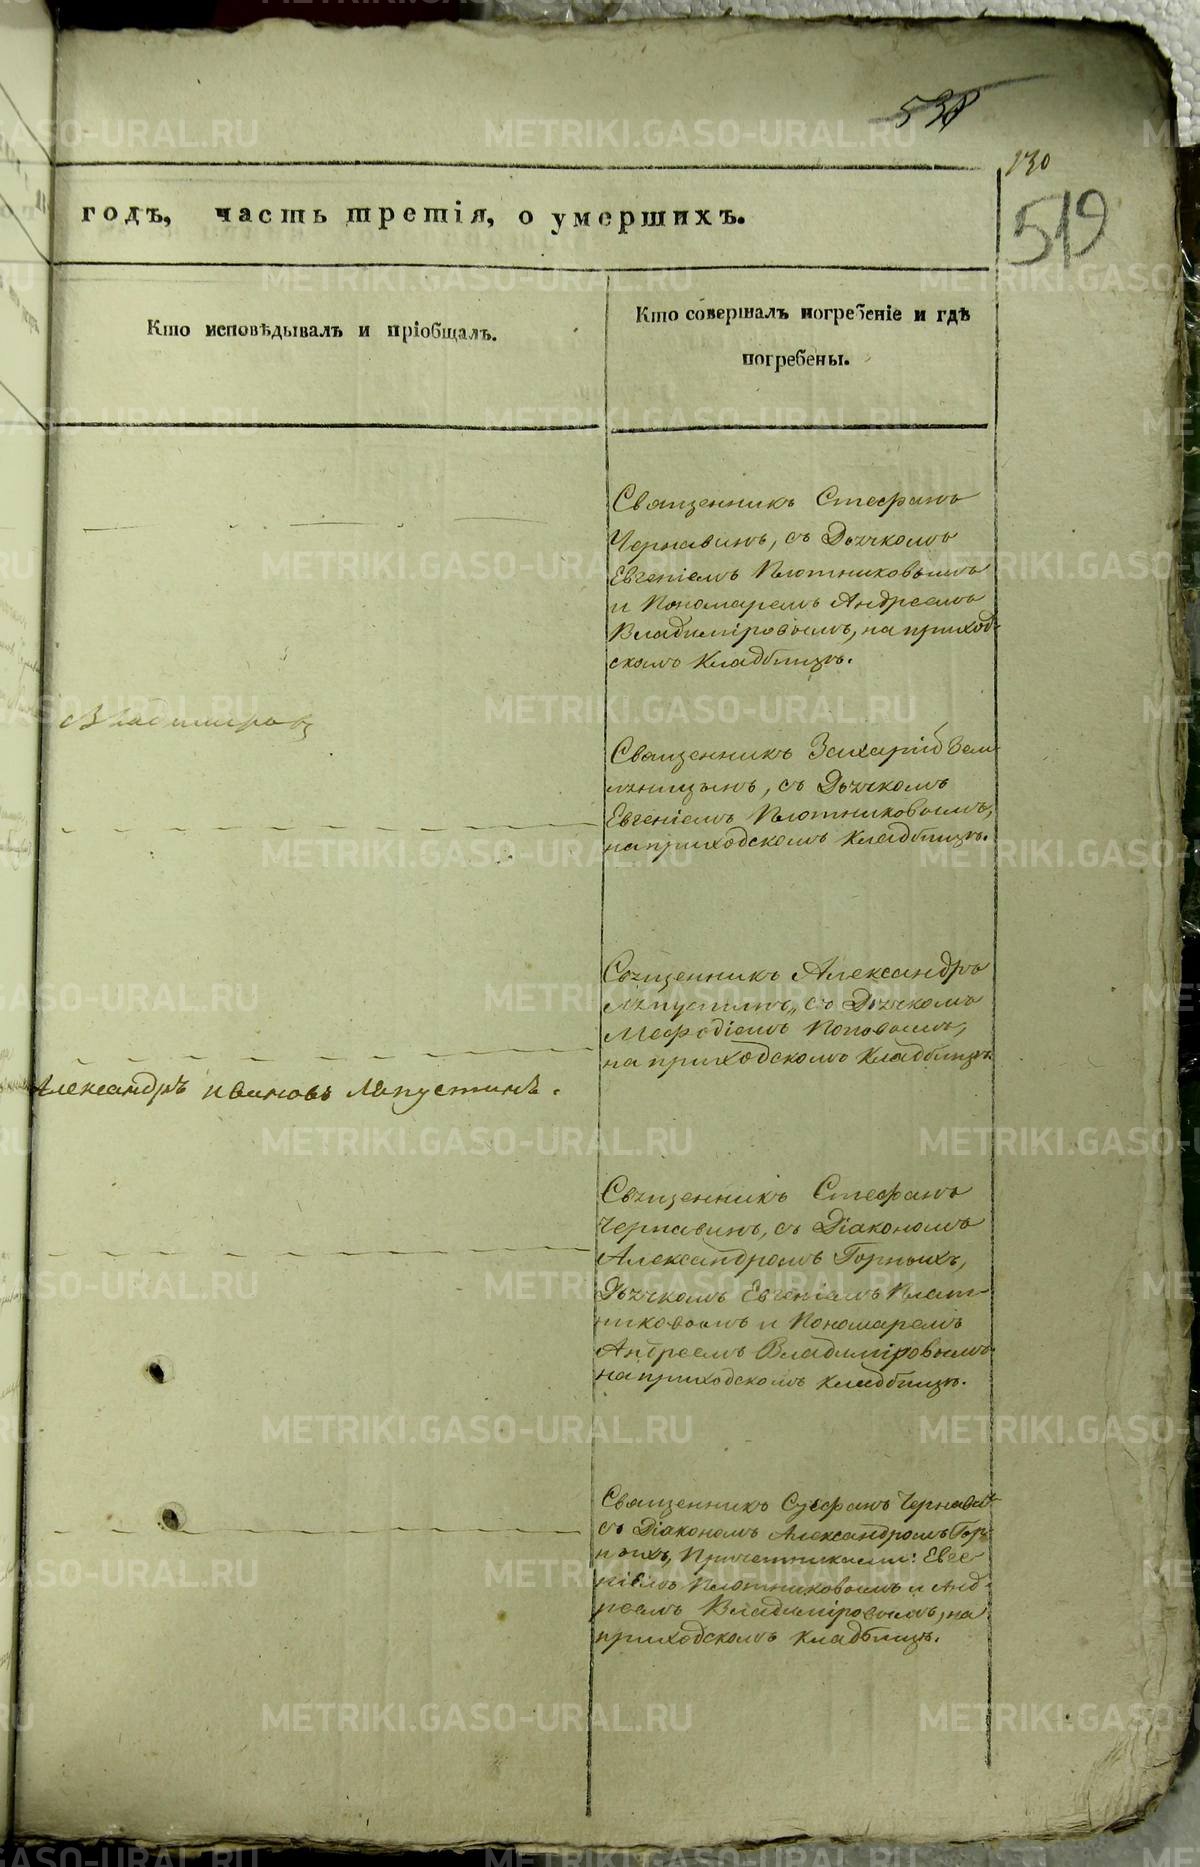 538
130
519
годъ, часть третія, о умершихъ.
Кто исповѣдывалъ и пріобщалъ.
Кто совершалъ погребеніе и гдѣ
погребены.
Священникъ Стефанъ
Чернавинъ, съ Дьячкомъ
Евгеніемъ Плотниковымъ
и Пономаремъ Андреемъ
Владиміровымъ, на приход-
скомъ кладбищѣ.
Владимировъ
Священникъ Захарій
съ Дьячкомъ
Евгеніемъ Плотниковымъ,
на приходскомъ кладбищѣ.
Священникъ Александръ
Ляпустинъ, съ Дьячкомъ
Меѳодіемъ Поповымъ,
на приходскомъ кладбищѣ.
Александръ Ивановъ Ляпустинъ.
Священникъ Стефанъ
Чернавинъ, съ Діакономъ
Александромъ Горныхъ,
Дьячкомъ Евгеніемъ Плот-
никовымъ и Пономаремъ
Андреемъ Владиміровымъ
на приходскомъ кладбищѣ.
Священникъ Стефанъ
съ Діакономъ Александромъ Гор-
ныхъ, Причетниками: Евге-
ніемъ Плотниковымъ и Анд-
реемъ Владиміровымъ, на
приходскомъ кладбищѣ.
METRIKI.GASO-URAL.RU